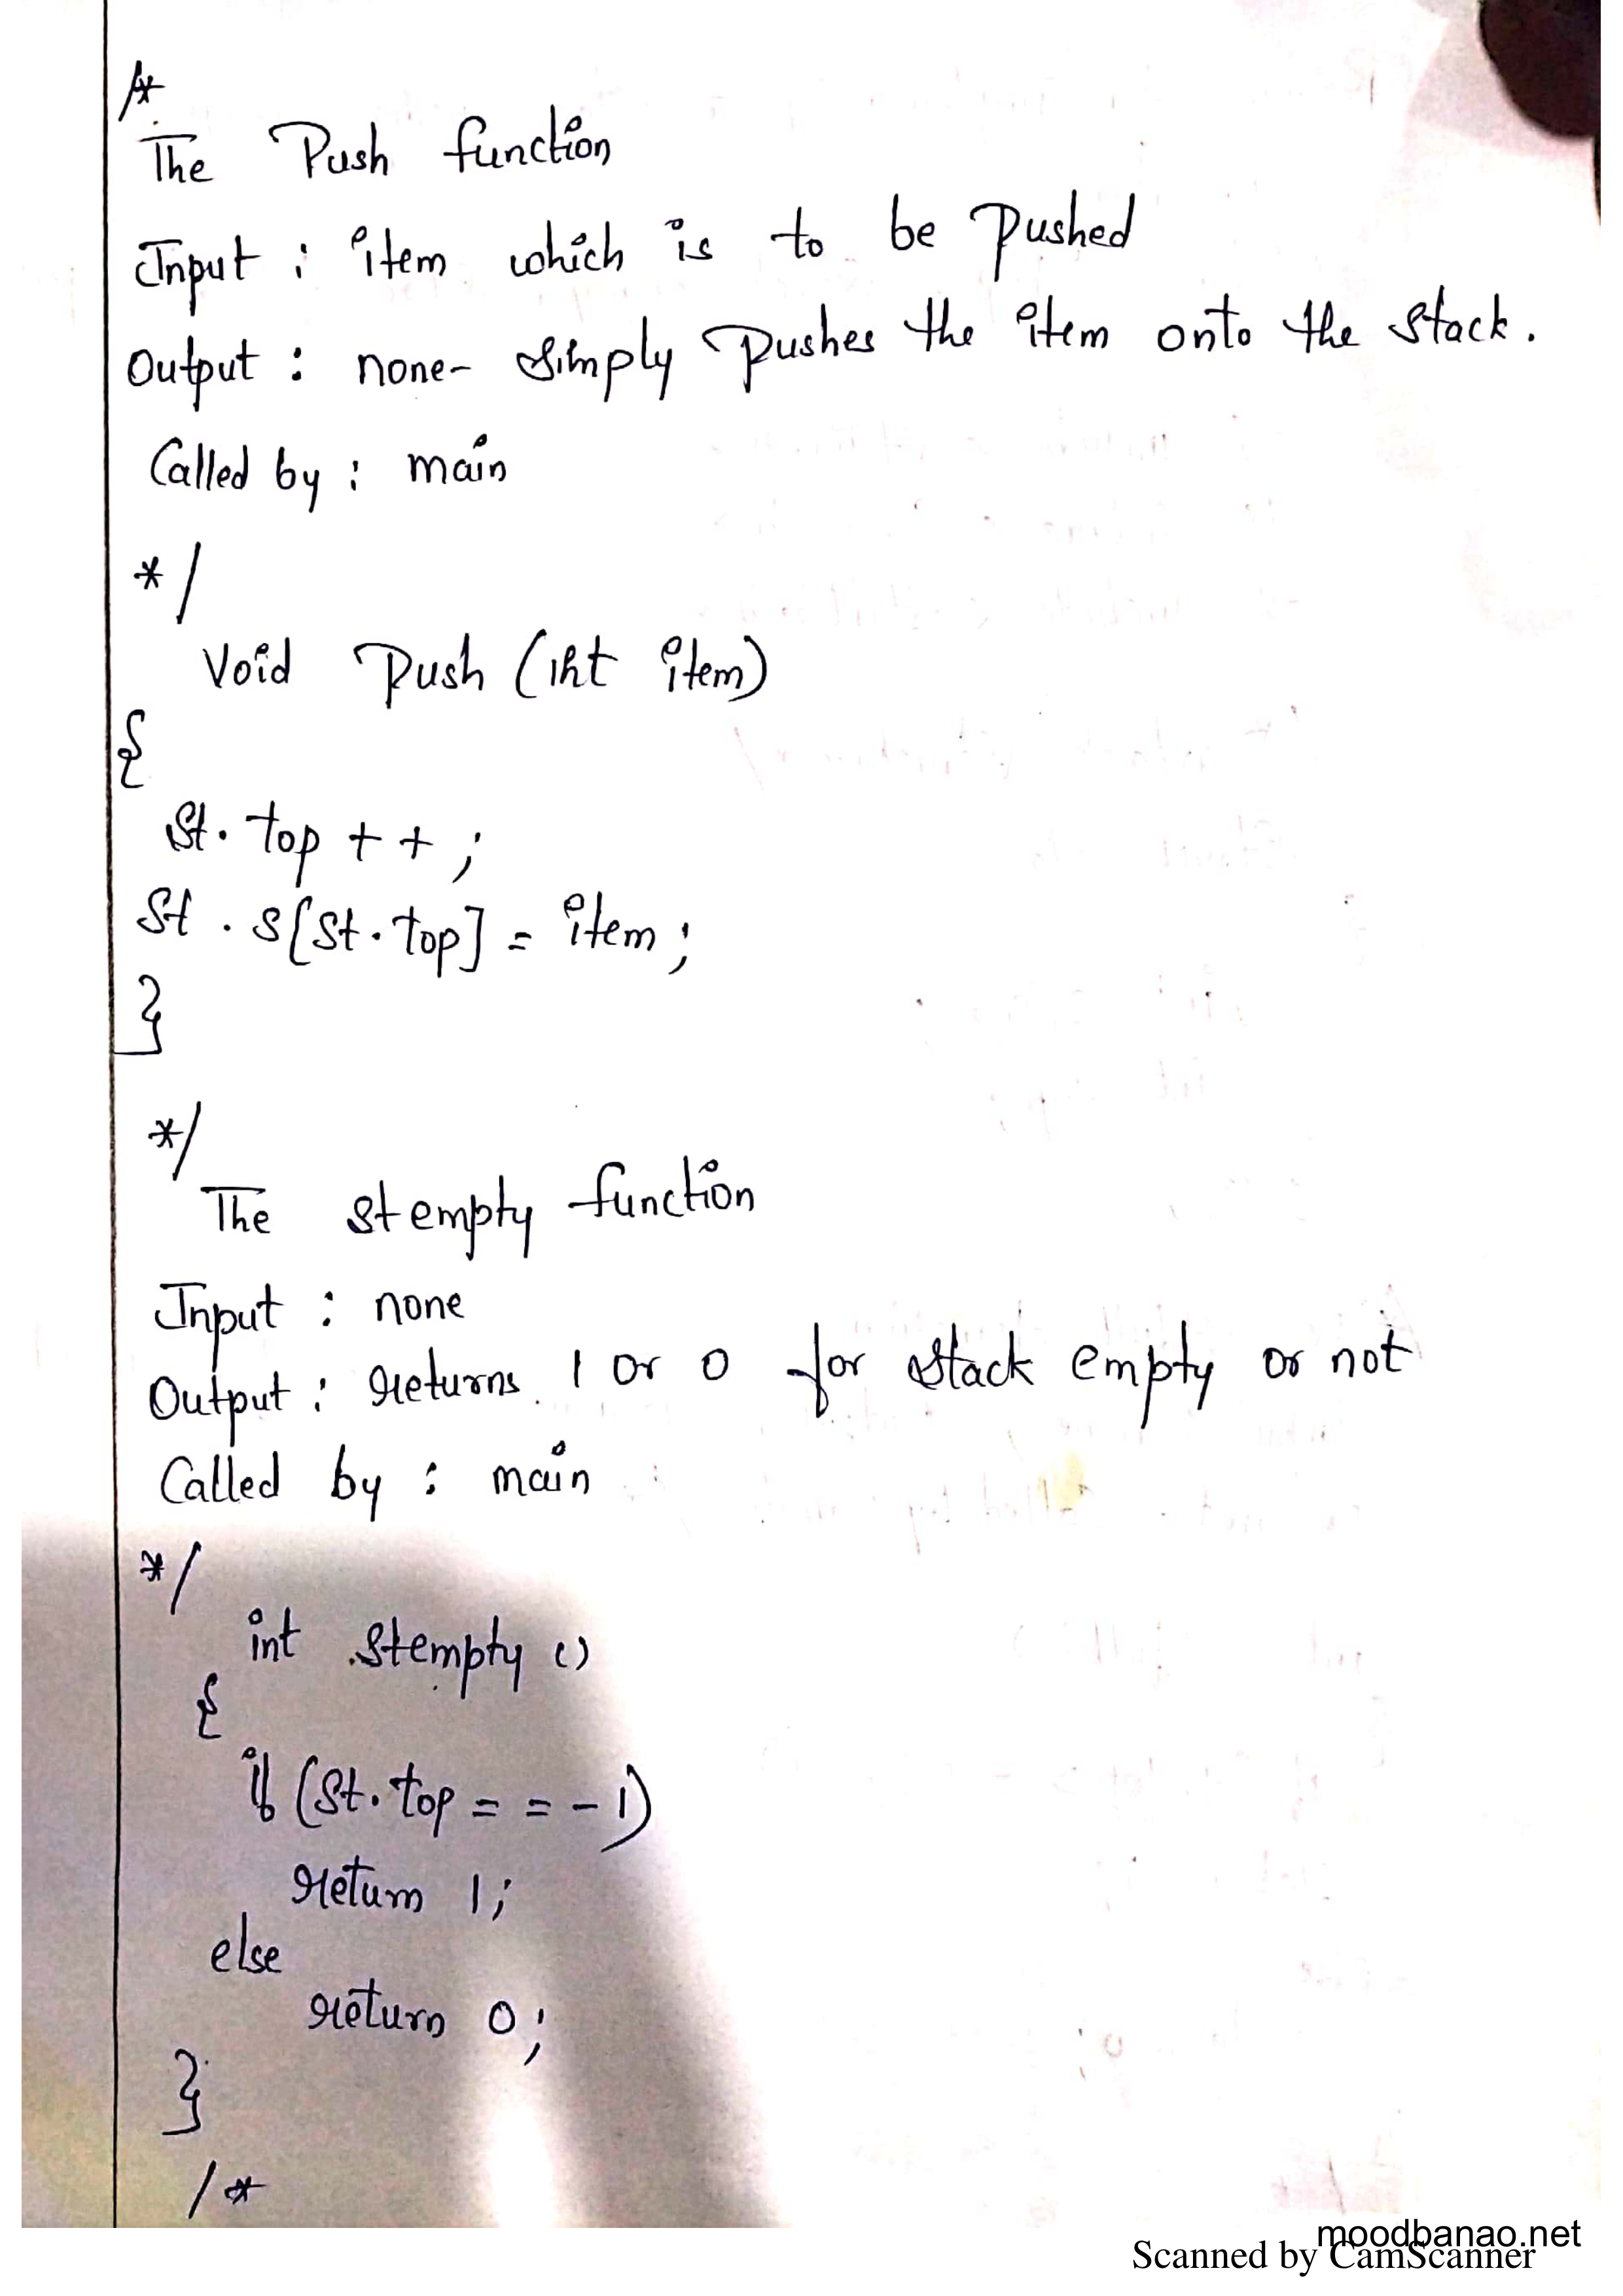 /*
The Push function
Input : item which is to be pushed
Output : none- simply pushes the item onto the stack.
Called by : main
*/
Void Push (int item)
{
St. top + + ;
St . s[St. top] = item ;
}
*/
The stempty function
Input : none
Output : returns 1 or 0 for stack empty or not
Called by : main
*/
int Stempty ()
{
if (St. top = = -1)
return 1;
else
return 0;
}
/*
moodbanao.net
Scanned by CamScanner